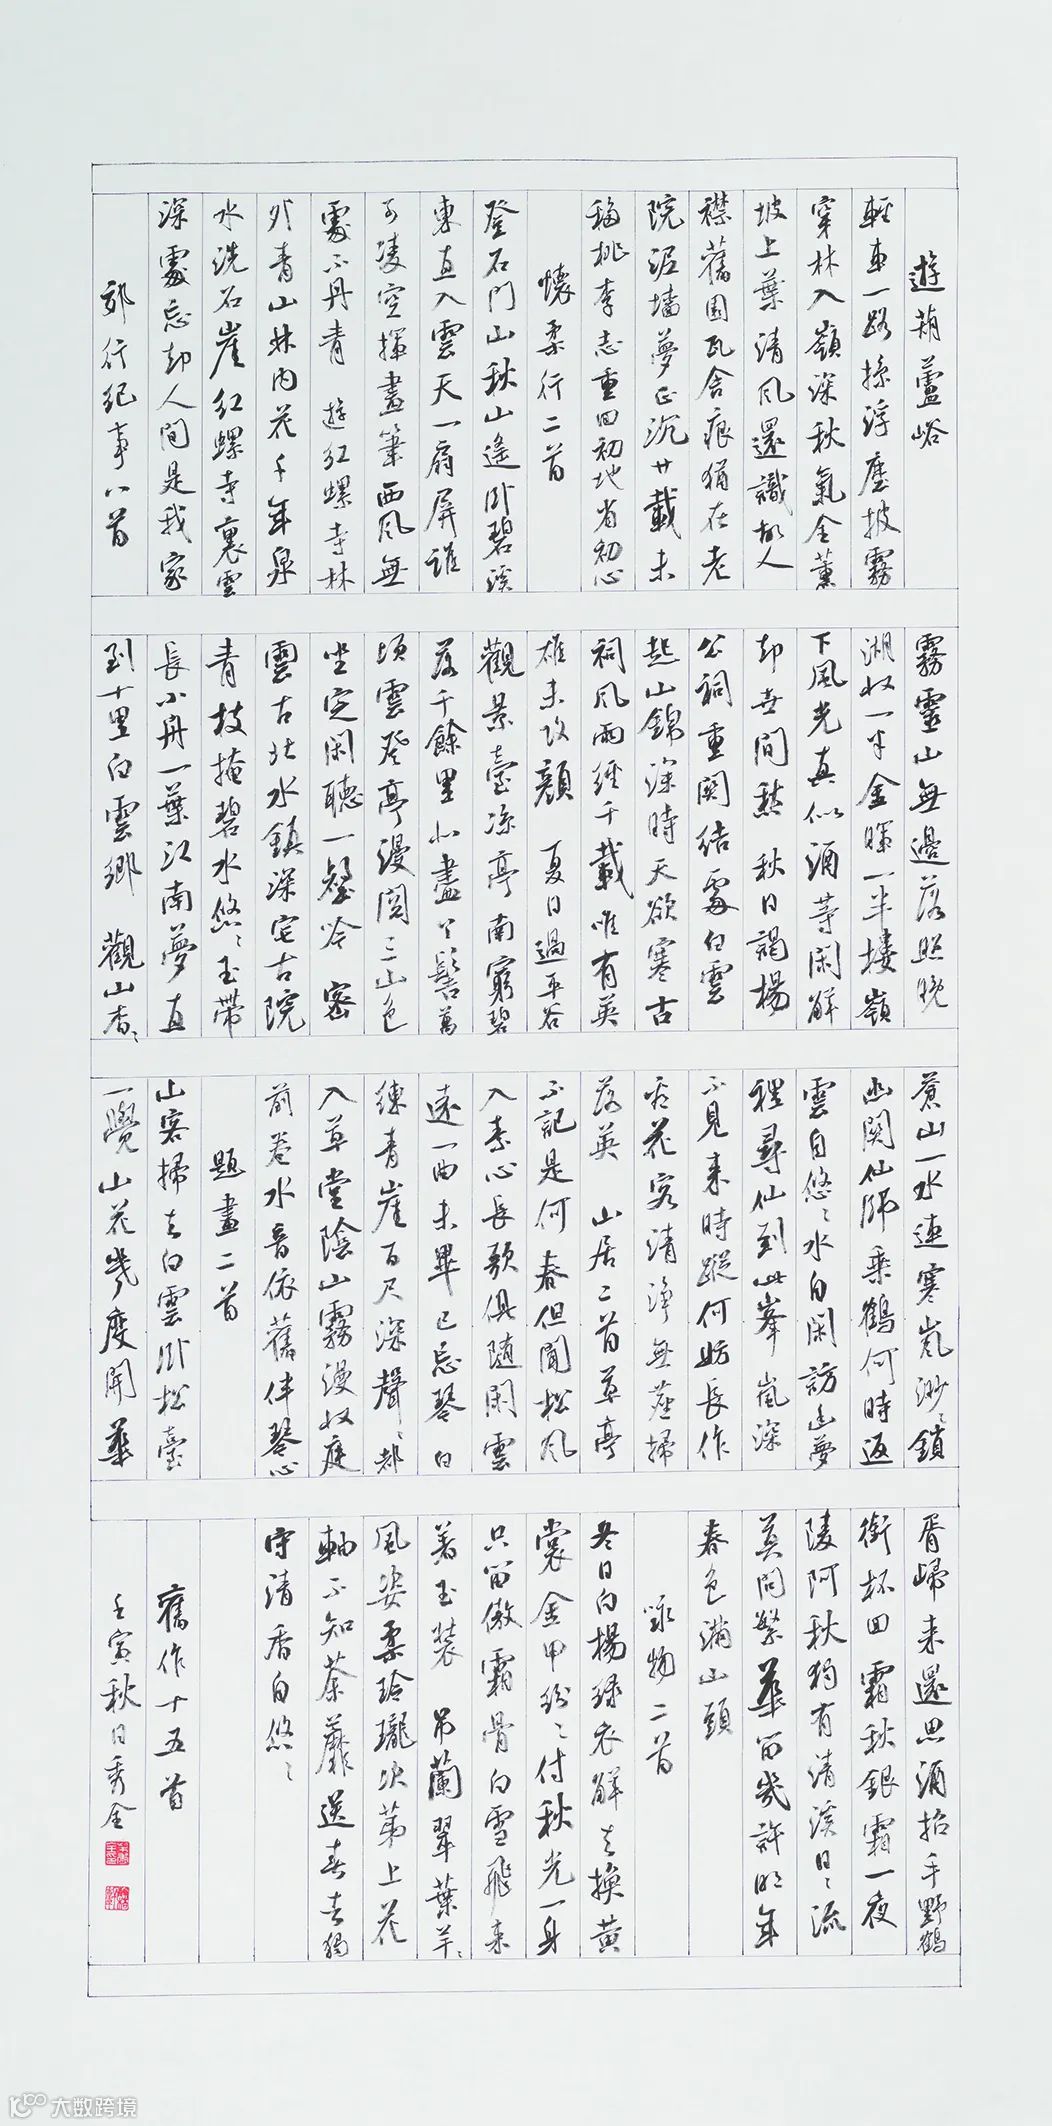 遊葫蘆峪
輕車一路掠浮塵披霧
穿林入嶺深秋氣全薰
坡上葉清風還識故人
襟舊園瓦舍痕猶在老
院泥墙夢正沉廿載未
穢桃李志重回初地省初心
懷柔行二首
登石門山秋山遙卧碧溪
東直入雲天一扇屏誰
可凌空揮畫筆西風無
處不丹青 遊紅螺寺林
外青山林内花千年泉
水洗石崖紅螺寺裏雲
深處忘却人間是我家
郊行紀事八首
霧靈山無邊落照晚
湖收一半金暉一半樓嶺
下風光真似酒等閑解
却世間愁 秋日謁楊
公祠重関結處白雲
起山錦深時天欲寒古
祠風雨經千載唯有英
雄未改顔 夏日過平谷
觀景臺凉亭南窮碧
落千餘里北盡丫髻萬
頃雲登亭漫閲三山色
坐定閑聽一磬吟 密
雲古北水鎮深宅古院
青枝掩碧水悠悠玉帶
長小舟一葉江南夢直
到十里白雲鄉 觀山杏
蒼山一水連寒嵐渺渺鎖
幽関仙師乘鶴何時返
雲自悠悠水自閑訪幽夢
裡尋仙到此峯嵐深
不見来時蹤何妨長作
看花客清淨無塵掃
落英 山居二首草亭
不記是何春但聞松風
入素心長歌俱随閑雲
遠一曲未畢已忘琴 白
練青崖百尺深聲聲都
入草堂陰山霧漫收庭
前卷水音依舊伴琴心
題畫二首
山客掃去白雲卧松臺
一覺山花幾度開華
胥歸来還思酒招手野鶴
銜杯回 霜秋銀霜一夜
陵阿秋獨有清溪日日流
莫問繁華留幾許明年
春色滿山頭
咏物二首
冬日白楊绿衣解去換黄
裳金甲紛紛付秋光一身
只留傲霜骨白雪飛来
著玉裝 吊蘭翠葉羊羊
風姿柔玲瓏次第上花
軸不知荼蘼送春去獨
守清香自悠悠
舊作十五首
壬寅秋日秀全
大数跨境